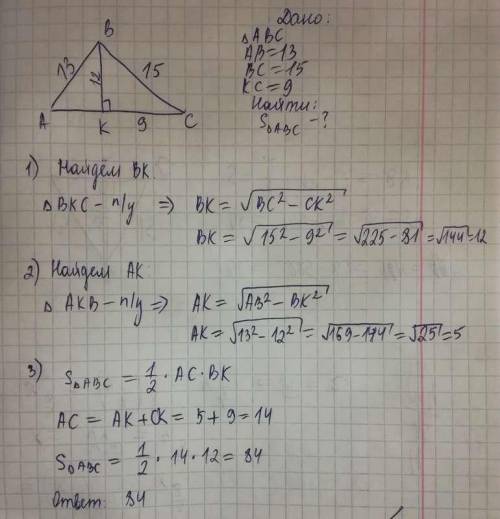 Дано:
△ABC
AB=13
BC=15
KC=9
Найти:
S△ABC-?
B
13
12
15
A
K
9
C
1) Найдём BK:
△BKC-п/у => BK = √BC²-CK²
BK = √15²-9² = √225-81 = √144=12
2) Найдем AK:
△AKB-п/у => AK = √AB²-BK²
AK = √13²-12² = √169-144 = √25=5
3) S△ABC = 1/2 · AC · BK
AC = AK+CK = 5+9=14
S△ABC = 1/2 · 14 · 12 = 84
Ответ: 84